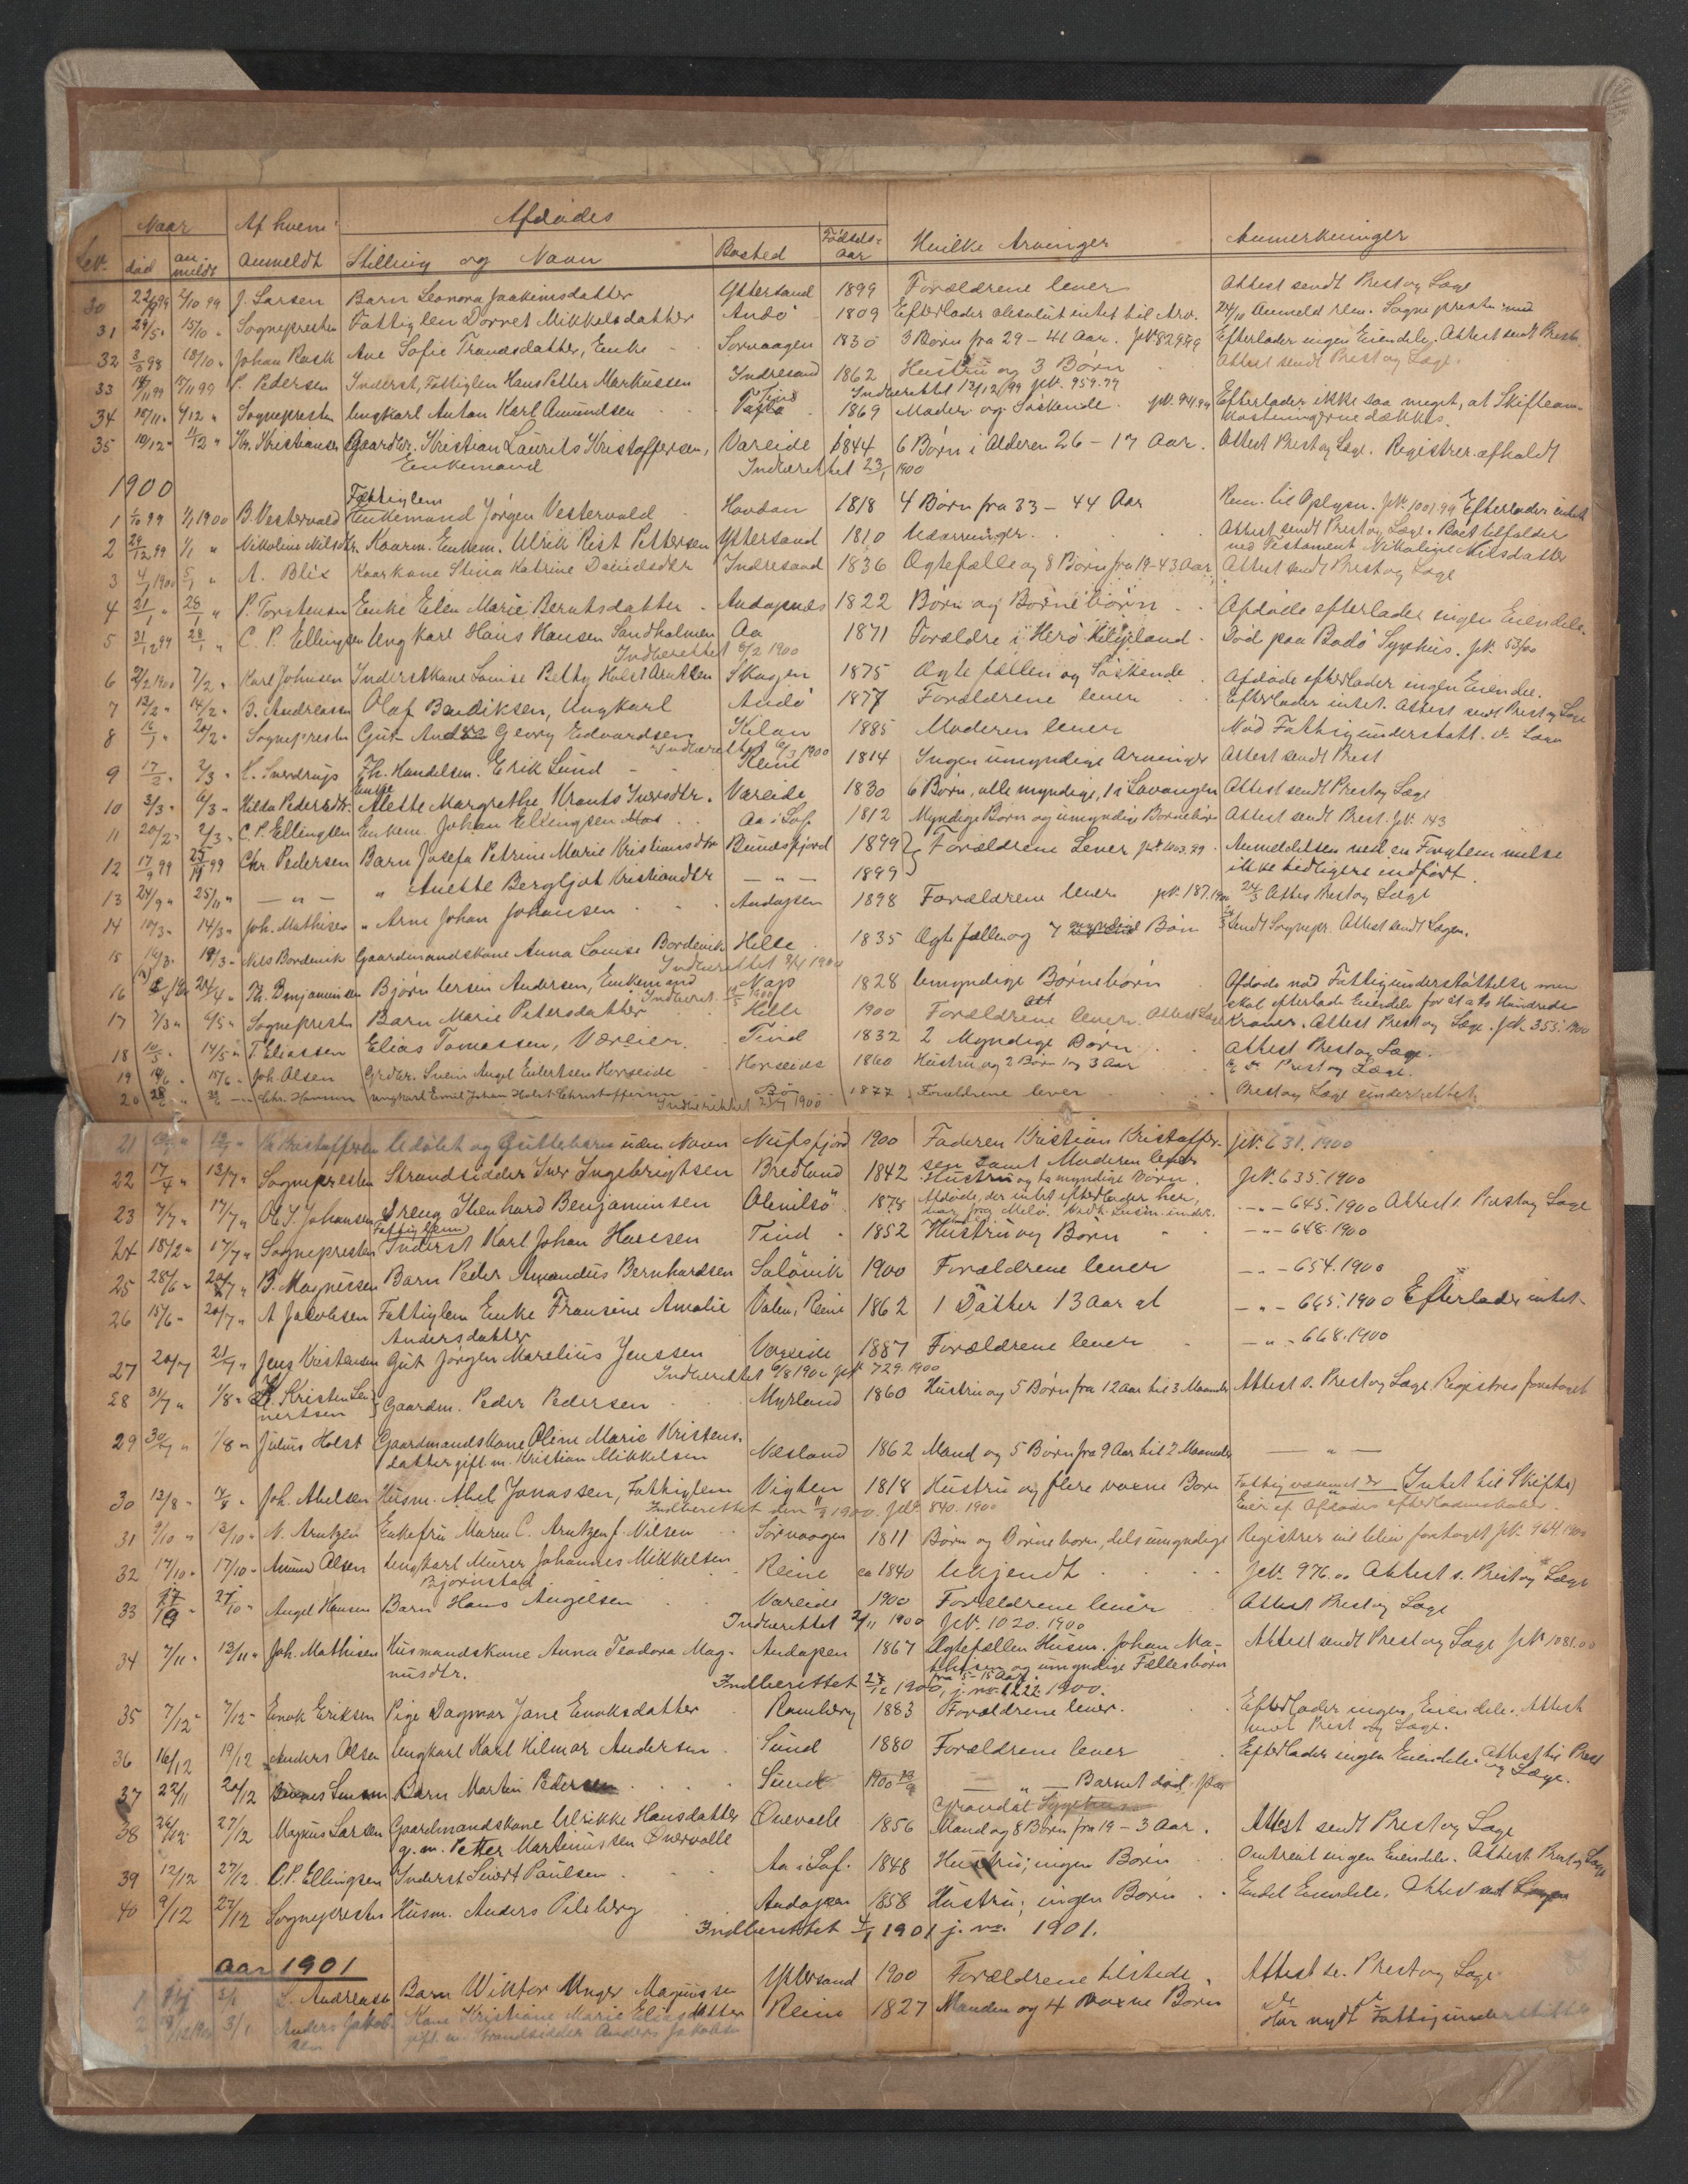 Naar Af hvem Afdødes
Lbr. død an meldt Anmeldt Stilling og Navn Bosted Fødsels- Aar Hvilke Arvinger Anmerkninger
30 22/9 99 2/10 99 J. Larsen Barn Leonora Joakimsdatter Yttersand 1899 Forældrene lever Attest sendt Prest og Læge
31 24/5 " 15/10 " Sognepresten Fattiglem Dorret Mikkelsdatter Andø 1809 Efterlader absolut intet til Arv. 24/10 Anmeld. ren. Sognepresten
32 3/3 98 18/10 " Johan Rask Ane Sofie Trondsdatter, Enke Sørvaagen 1830 3 Børn fra 29 – 41 Aar. Efterlader ingen Eiendele. Attest sendt Prest.
33 11 99 15/11 99 P. Pedersen Inderst, Fattiglem Hans Petter Markussen Indresand 1862 Hustru og 3 Børn Attest sendt Prest og Læge.
Indberettet 13/12 99 JN. 959.99
34 15/11 " 4/12 " Sognepresten Ungkarl Anton Karl Amundsen Tind 1869 Moder og Søskende. Efterlader ikke saa meget, at Skifteom-
kostningerne dækkes.
35 10/12 " 11/12 " Kr. Kristiansen Gaardbr. Kristian Laurits Kristoffersen, Vareide 1844 6 Børn i Alderen 26 – 17 Aar. Attest Prest og Læge. Registrer. afholdt
Enkemand Indberettet 23/1 1900
1900
Fattiglem
1 1/10 99 1/1 1900 B. Vestervold Enkemand Jørgen Vestervold Hovdan 1818 4 Børn fra 33 – 44 Aar Rem. til Oplysn. JN. 1001.99 Efterlader intet
2 24/12 99 1/1 " Nikoline Nilsdtr. Kaarm. Enkem. Ulrik Rist Pettersen Yttersand 1810 Udarvinger. Attest sendt Prest og Læge. Boet tilfalder
ved Testament Nikoline Nilsdatter
3 4/1 1900 5/1 " A. Blix Kaarkone Stina Katrine Danielsdtr Indresand 1836 Ægtefælle og 8 Børn fra 19–43 Aar Attest sendt Prest og Læge
4 21/1 " 28/1 " P. Torstensen Enke Elen Marie Berntsdatter Andopnes 1822 Børn og Børnebørn Afdøde efterlader ingen Eiendele.
5 31/12 99 28/1 " C. P. Ellingsen Ungkarl Hans Hansen Sandholmen Aa 1871 Forældre i Herø Helgeland. Død paa Bodø Sygehus. JN. 53/00
Indberettet 6/2 1900
6 2/2 1900 7/2 " Karl Johnsen Inderstkone Louise Betty Holst Arntsen Skagen 1875 Ægtefællen og Søskende Afdøde efterlader ingen Eiendel.
7 12/2 " 14/2 " B. Andreassen Olaf Bendiksen, Ungkarl Andø 1877 Forældrene lever Efterlader intet. Attest sendt Prest og Læge
8 16/1 " 20/2 " Sognepresten Gut Georg Edvardsen Kilan 1885 Moderen lever Nød Fattigunderstøtt.
Indberettet 6/3 1900
9 17/2 " 2/3 " H. Sverdrup Fh. Handelsm. Erik Lund Reine 1814 Ingen umyndige Arvinger Attest sendt Prest
10 3/3 " 6/3 " Hilda Pedersdtr. Enke Alette Margrethe Krants Iversdtr. Vareide 1830 6 Børn, alle myndige, 1 i Lavangen Attest sendt Prest og Læge
11 20/2 " 2/3 " C. P. Ellingsen Enkem. Johan Ellingsen Aa i Lof. 1812 Myndige Børn og umyndige Børnebørn Attest sendt Prest. JN. 143
12 17/9 99 25/11 99 Chr. Pedersen Barn Josefa Petrine Marie Kristiansdtr Bundsfjord 1899 Forældrene Lever JN. 1003.99 Anmeldelsen ved en Forglemmelse
ikke tidligere indført.
13 24/9 " 25/11 " — " — " Anette Bergljot Kristiansdtr — " — 1899
14 10/3 " 14/3 " Joh. Mathisen " Arne Johan Johansen Andopen 1898 Forældrene lever JN. 187.1900 24/3 Attes Prest og Læge
15 16/3 " 19/3 " Nils Bordevik Gaardmandskone Anna Louise Bordevik Helle 1835 Ægtefælle og 7 myndige Børn Sendt Sognepr. Attest sendt Lægen.
Indberettet 3/4 1900
16 24/4 " Th. Benjaminsen Bjørn Iversen Andersen, Enkemand Nap 1828 Umyndige Børnebørn Afdøde nød Fattigunderstøttelse men
skal efterlade Eiendele for et a to Hundrede
Kroner. Attest Prest og Læge. JN. 353. 1900
17 7/3 " 6/5 " Sognepresten Barn Marie Petersdatter Helle 1900 Forældrene lever. Attest Læge
18 10/5 " 14/5 " T. Eliassen Elias Tomassen, Væreier. Tind 1832 2 Myndige Børn Attest Prest og Læge.
19 14/6 " 15/6 " Joh. Olsen Grdbr. Svein Angel Eilertsen Horseide Horseide 1860 Hustru og 2 Børn 1 og 3 Aar Prest og Læge.
20 Chr. Hansen Ungkarl Emil Johan Holst Christoffersen Bø 1877 Forældrene lever Prest og Læge underrettet
Indberettet 1900
21 Kr. Kristoffersen Udøbt og Guttebarn uden Navn Nufsfjord 1900 Faderen Kristian Kristoffer- JN. 631. 1900
sen samt Moderen lever
22 17/4 " 13/7 " Sognepresten Strandsidder Iver Ingebrigtsen Bredland 1842 Hustru og to myndige Børn. JN. 635. 1900
23 7/7 " 17/7 " Ol. S. Johansen Dreng Ihenhard Benjaminsen Olenilsø 1878 Afdøde, der intet efterlader her, — " — 645. 1900 Attest s. Prest og Læge
Fattiglem
24 18/2 " 17/7 " Sognepresten Inderst Karl Johan Hansen Tind 1852 Hustru og Børn — " — 648. 1900
25 28/6 " 20/7 " B. Magnussen Barn Peder Amandus Bernhardsen Soløvik 1900 Forældrene lever — " — 654. 1900
26 15/6 " 20/7 " A. Jakobsen Fattiglem Enke Fransine Amalie Valen, Reine 1862 1 Datter 13 Aar gl — " — 665. 1900 Efterlader intet
Andersdatter
27 20/7 21/7 " Jens Kristensen Gut Jørgen Marelius Jenssen Vareide 1887 Forældrene lever — " — 668. 1900
Indberettet 6/8 1900 JN. 729. 1900
28 31/7 " 1/8 " Kristen Len- Gaardm. Peder Pedersen Myrland 1860 Hustru og 5 Børn fra 12 Aar til 3 Maaneder Attest s. Prest og Læge. Registrer. foretaget
nertsen
29 30/7 " 1/8 " Julius Holst Gaardmandskone Oline Marie Kristens- Næsland 1862 Mand og 5 Børn fra 9 Aar til 2 Maaneder — " —
datter gift m. Kristian Mikkelsen
30 12/8 " 17/8 " Joh. Abelsen Husm. Abel Jonassen, Fattiglem Vigten 1818 Hustru og flere voxne Børn (Intet til Skifte)
Indberettet den 11/9 1900. JN. 840. 1900 Eier af Afdødes efterladenskaber.
31 9/10 " 12/10 " N. Arntzen Enkefru Maren C. Arntzen f. Nilsen Sørvaagen 1811 Børn og Børnebørn, dels umyndige Registrer. vil blive foretaget JN. 964 1900
32 17/10 " 17/10 " Amund Olsen Ungkarl Murer Johannes Mikkelsen Reine ca 1840 Ukjendt JN. 976.00 Attest s. Prest og Læge
Bjørnstad
33 27/10 " Angel Hansen Barn Hans Angelsen Vareide 1900 Forældrene lever Attest Prest og Læge
Indberettet 2/11 1900 JN. 1020. 1900
34 7/11 " 13/11 " Joh. Mathisen Husmandskone Anna Teodora Mag- Andopen 1867 Ægtefællen Husm. Johan Ma- Attest sendt Prest og Læge JN. 1081.00
nusdtr. thisen og umyndige Fællesbørn
fra 5–15 Aar.
Indberettet 1900, j. no. 1222. 1900.
35 7/12 " 7/12 " Enok Eriksen Pige Dagmar Jane Enoksdatter Ramberg 1883 Forældrene lever. Efterlader ingen Eiendele. Attest
sendt Prest og Læge.
36 16/12 19/12 Anders Olsen Ungkarl Karl Hilmar Andersen Sund 1880 Forældrene lever Efterlader ingen Eiendele. Attest til Prest
og Læge.
37 22/11 20/12 Barn Martin Pedersen Sund 1900 — " — Barnet død paa
Gravdal Sygehus
38 24/12 27/12 Magnus Larsen Gaardmandskone Ulrikke Hansdatter Ørevolle 1856 Mand og 8 Børn fra 19 – 3 Aar. Attest sendt Prest og Læge
g. m. Petter Martinussen Ørevolle
39 12/12 27/12 C. P. Ellingsen Inderst Sivert Paulsen Aa i Lof. 1848 Hustru; ingen Børn Omtrent ingen Eiendele. Attest Prest og Læge
40 9/12 27/12 Sognepresten Husm. Anders Pileberg Andopen 1858 Hustru; ingen Børn Endel Eiendele.
Indberettet 4/1 1901 j. no. 1901.
Aar 1901
1 L. Andreassen Barn Wiktor Unger Magnussen Yttersand 1900 Forældrene tilstede. Attest se. Prest og Læge
2 3/1 Anders Jakob- Kone Kristiane Marie Eliasdatter Reine 1827 Manden og 4 voxne Børn Har nydt Fattigunderstøtte
sen gift m. Strandsidder Anders Jakobsen